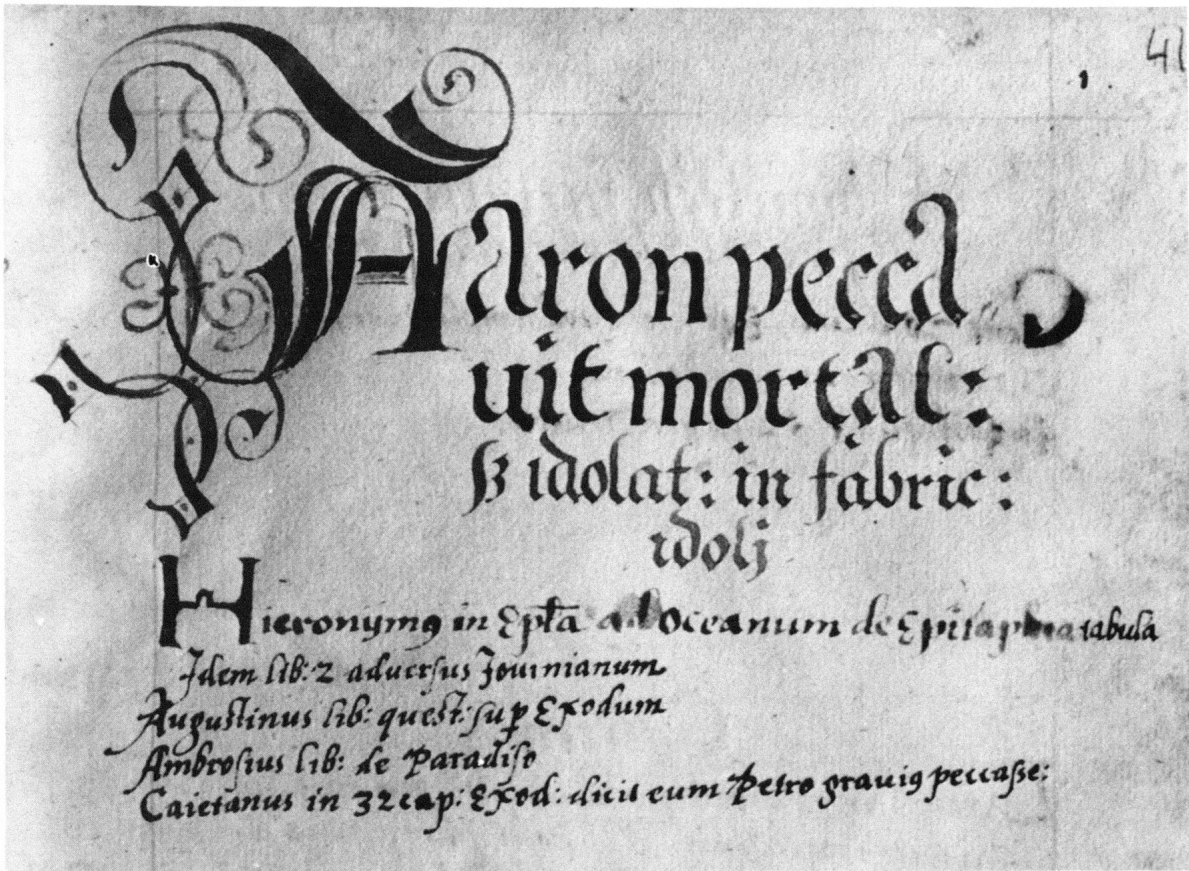 41
Aaron pecca
uit mortal:
ꝑ idolat: in fabric:
idolj
Hieronijmꝰ in Epĩa ad Oceanum de Epitaphia tabula
Idem lib: 2 adversus Jovinianum
Augustinus lib: quest: sup Exodum
Ambrosius lib: de Paradiso
Caietanus in 32 cap: Exod: dicit eum Petro graviꝰ peccaſse: